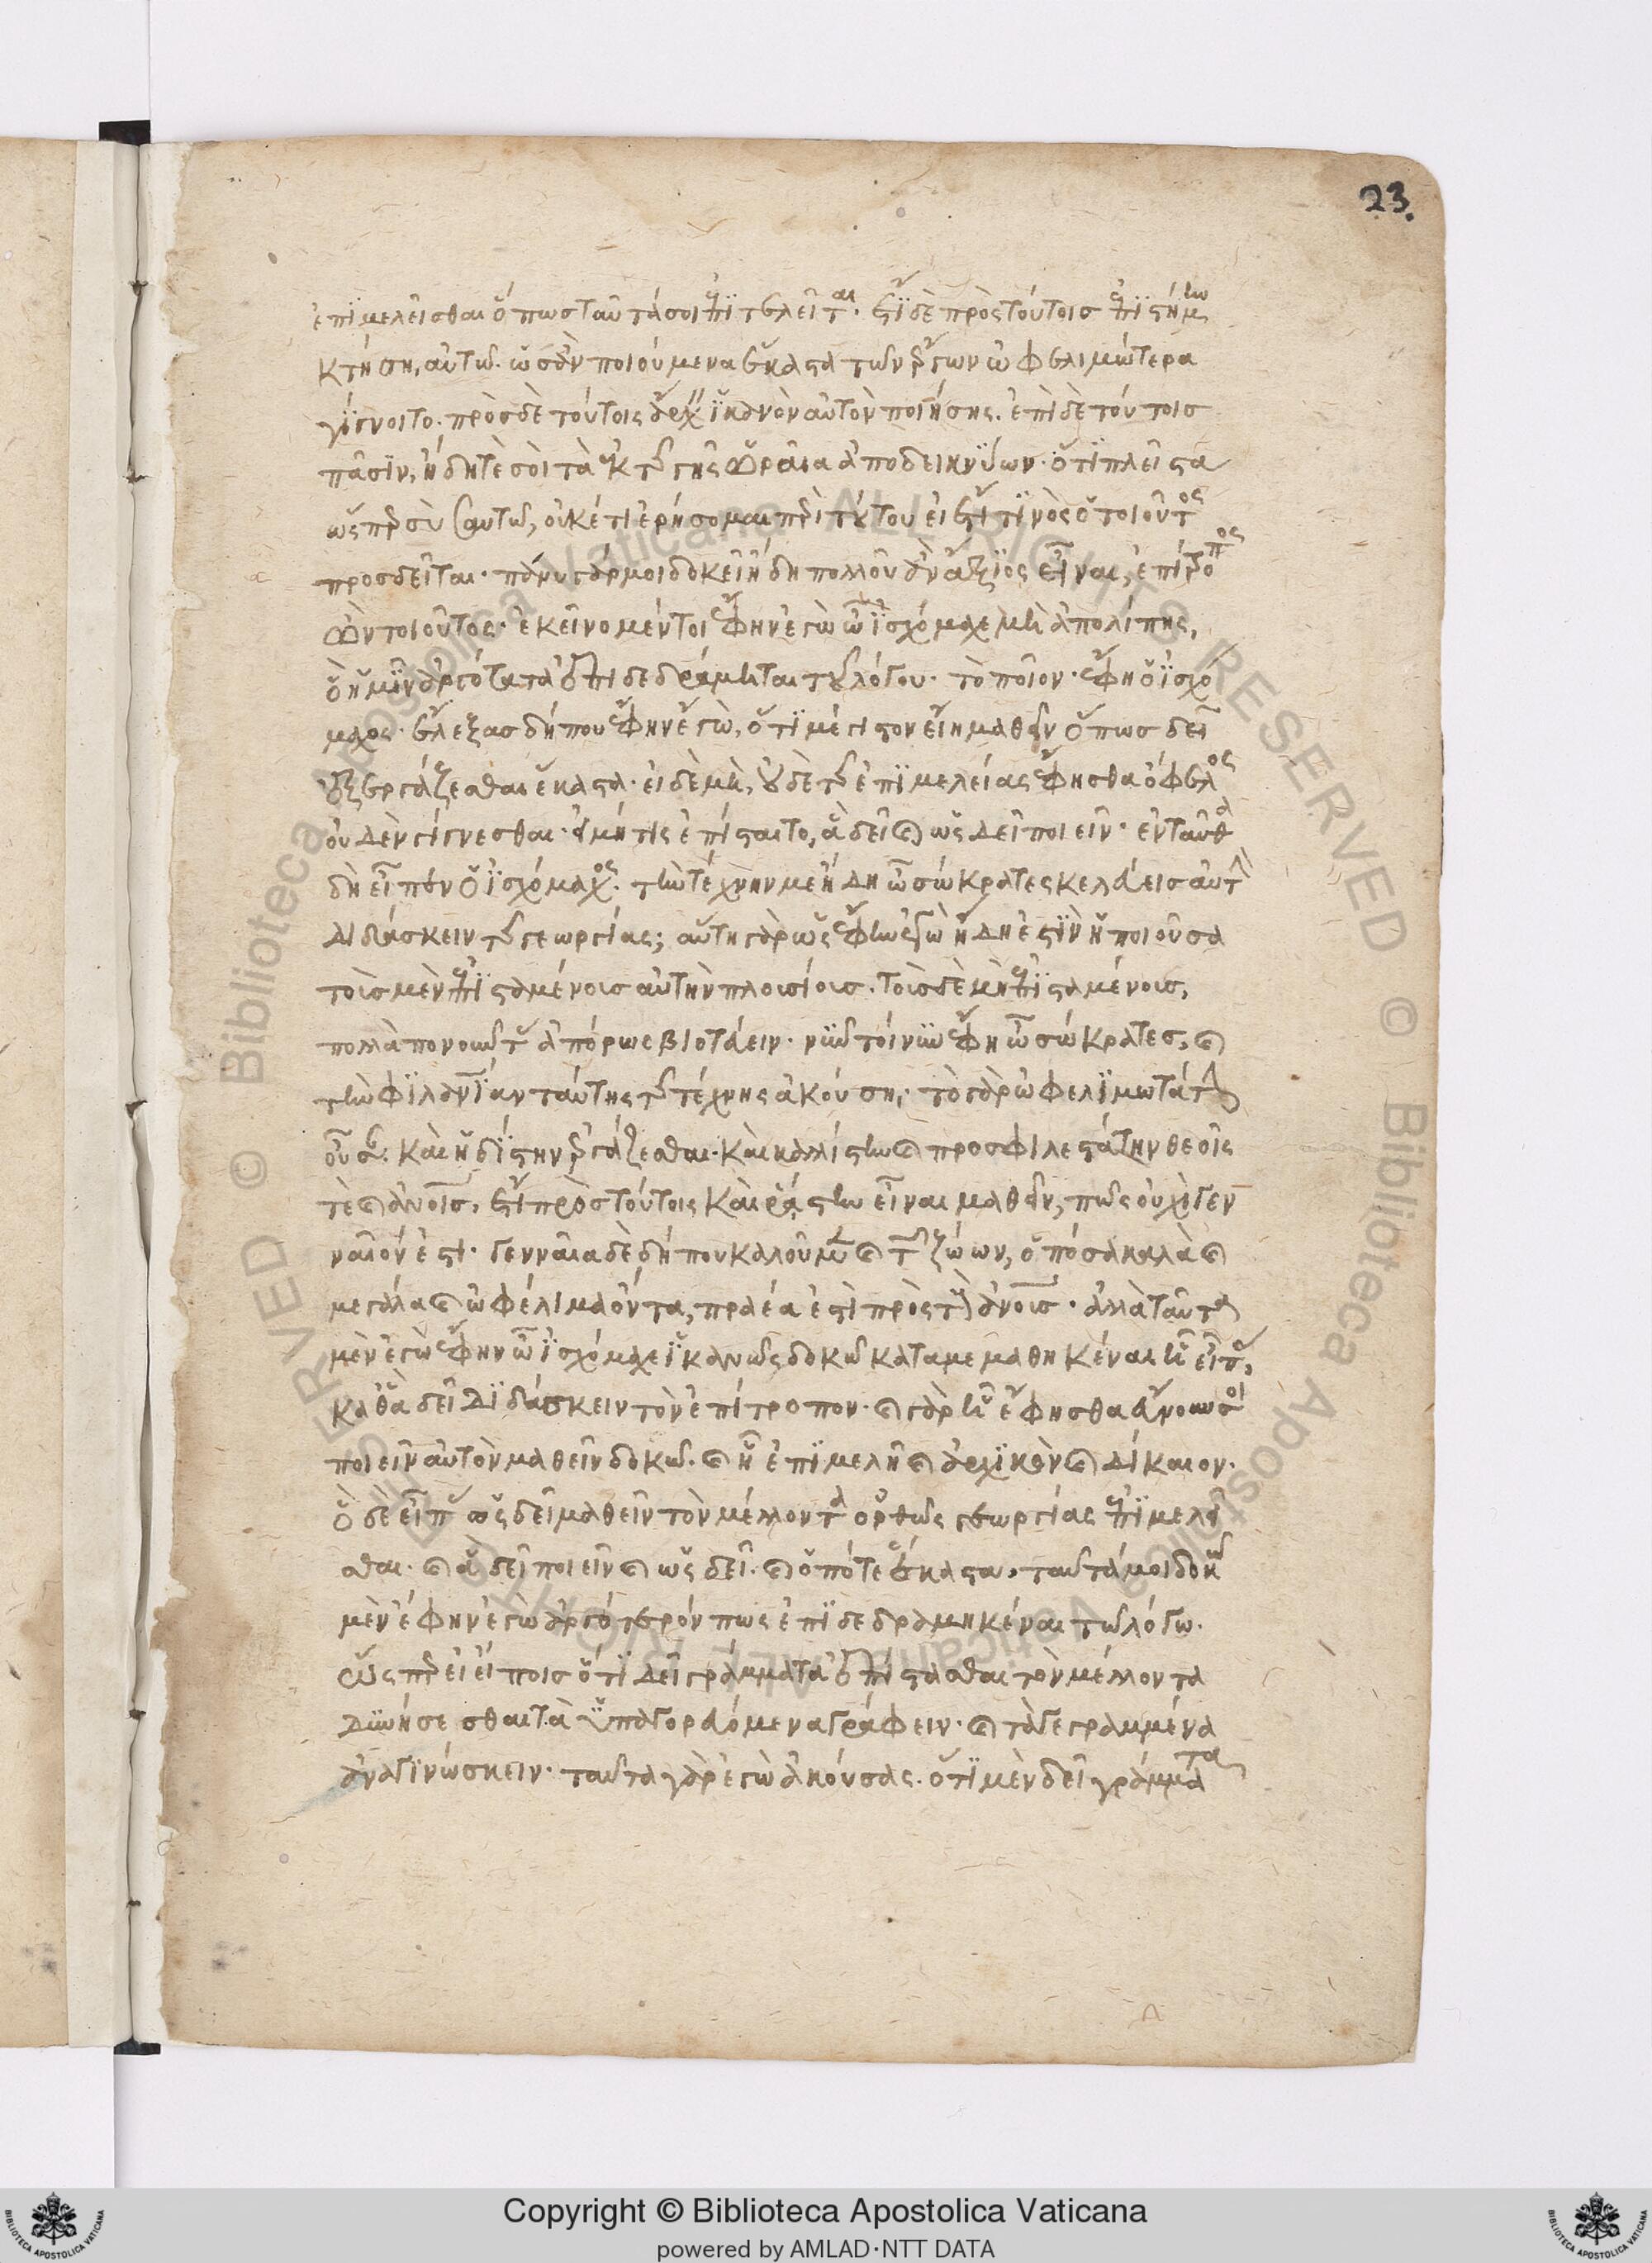 23.
ἐπιμελεῖσθαι ὅπως ταῦτά σοι ἐπιτελεῖται. ἔτι δὲ πρὸς τούτοις ἐπιστήμην
κτήσῃ αὐτῷ. ὡς ἂν ποιούμενα ἕκαστα τῶν ἔργων ὠφελιμώτερα
γίγνοιτο. πρὸς δὲ τούτοις ἄρχειν ἱκανὸν αὐτὸν ποιήσῃς. ἐπὶ δὲ τούτοις
πᾶσιν, ἥδηταί σοι τὰ ἐκ τῆς γῆς ὡραῖα ἀποδεικνύων. ὅτι πλεῖστα
ὥσπερ σὺ σαυτῷ, οὐκέτι ἐρήσομαι περὶ τούτου εἰ ἔτι τινὸς ὁ τοιοῦτος
προσδεῖται. πάνυ γάρ μοι δοκεῖ ἤδη πολλοῦ ἂν ἄξιος εἶναι, ἐπίτροπος
ὢν τοιοῦτος. ἐκεῖνο μέντοι ἔφην ἐγὼ ὦ ἰσχόμαχε μὴ ἀπολίπῃς,
ὃ ἡμῖν ἀργότατα ἐπιδεδράμηται τοῦ λόγου. τὸ ποῖον. ἔφη ὁ ἰσχό
μαχος. ἔλεξας δήπου ἔφην ἐγὼ, ὅτι μέγιστον εἴη μαθεῖν ὅπως δεῖ
ἐξεργάζεσθαι ἕκαστα. εἰ δὲ μὴ, οὐδὲ τῆς ἐπιμελείας ἔφησθα ὄφελος
οὐδὲν γίγνεσθαι. εἰ μή τις ἐπίσταιτο, ἃ δεῖ καὶ ὡς δεῖ ποιεῖν. ἐνταῦθα
δὴ εἶπεν ὁ ἰσχόμαχος. τὴν τέχνην με ἤδη ὦ σώκρατες κελεύεις αὐτὴν
διδάσκειν τῆς γεωργίας; αὕτη γὰρ ὡς ἔφην ἐγὼ ἤδη ἐστὶν ἡ ποιοῦσα
τοῖς μὲν ἐπισταμένοις αὐτὴν πλουσίους. τοῖς δὲ μὴ ἐπισταμένοις,
πολλὰ πονοῦντας ἀπόρως βιοτεύειν. νῦν τοίνυν ἔφη ὦ σώκρατες, καὶ
τὴν φιλανθρωπίαν ταύτης τῆς τέχνης ἀκούσῃ. τὸ γὰρ ὠφελιμωτάτην
οὖσαν. καὶ ἡδίστην ἐργάζεσθαι. καὶ καλλίστην καὶ προσφιλεστάτην θεοῖς
τε καὶ ἀνθρώποις, ἔτι πρὸς τούτοις καὶ ῥᾴστην εἶναι μαθεῖν, πῶς οὐχὶ γεν
ναῖόν ἐστι. γενναῖα δὲ δήπου καλοῦμεν καὶ τῶν ζώων, ὁπόσα καλὰ καὶ
μεγάλα καὶ ὠφέλιμα ὄντα, πραέα ἐστὶ πρὸς τοὺς ἀνθρώπους. ἀλλὰ ταῦτα
μὲν ἐγὼ ἔφην ὦ ἰσχόμαχε ἱκανῶς δοκῶ καταμεμαθηκέναι ᾗ εἶπας,
καθὰ δεῖ διδάσκειν τὸν ἐπίτροπον. καὶ γὰρ ᾗ ἔφησθα εὔνουν σοι
ποιεῖν αὐτὸν μαθεῖν δοκῶ. καὶ ᾗ ἐπιμελῆ καὶ ἀρχικὸν καὶ δίκαιον.
ὃ δὲ εἶπας ὡς δεῖ μαθεῖν τὸν μέλλοντα ὀρθῶς γεωργίας ἐπιμελεῖ
σθαι. καὶ ἃ δεῖ ποιεῖν καὶ ὡς δεῖ. καὶ ὁπότε ἕκαστα, ταῦτά μοι δοκοῦμεν
μὲν ἔφην ἐγὼ ἀργότερόν πως ἐπιδεδραμηκέναι τῷ λόγῳ.
ὥσπερ εἰ εἴποις ὅτι δεῖ γράμματα ἐπίστασθαι τὸν μέλλοντα
δυνήσεσθαι τὰ ὑπαγορευόμενα γράφειν. καὶ τὰ γεγραμμένα
ἀναγινώσκειν. ταῦτα γὰρ ἐγὼ ἀκούσας. ὅτι μὲν δεῖ γράμματα
Copyright © Biblioteca Apostolica Vaticana
powered by AMLAD·NTT DATA